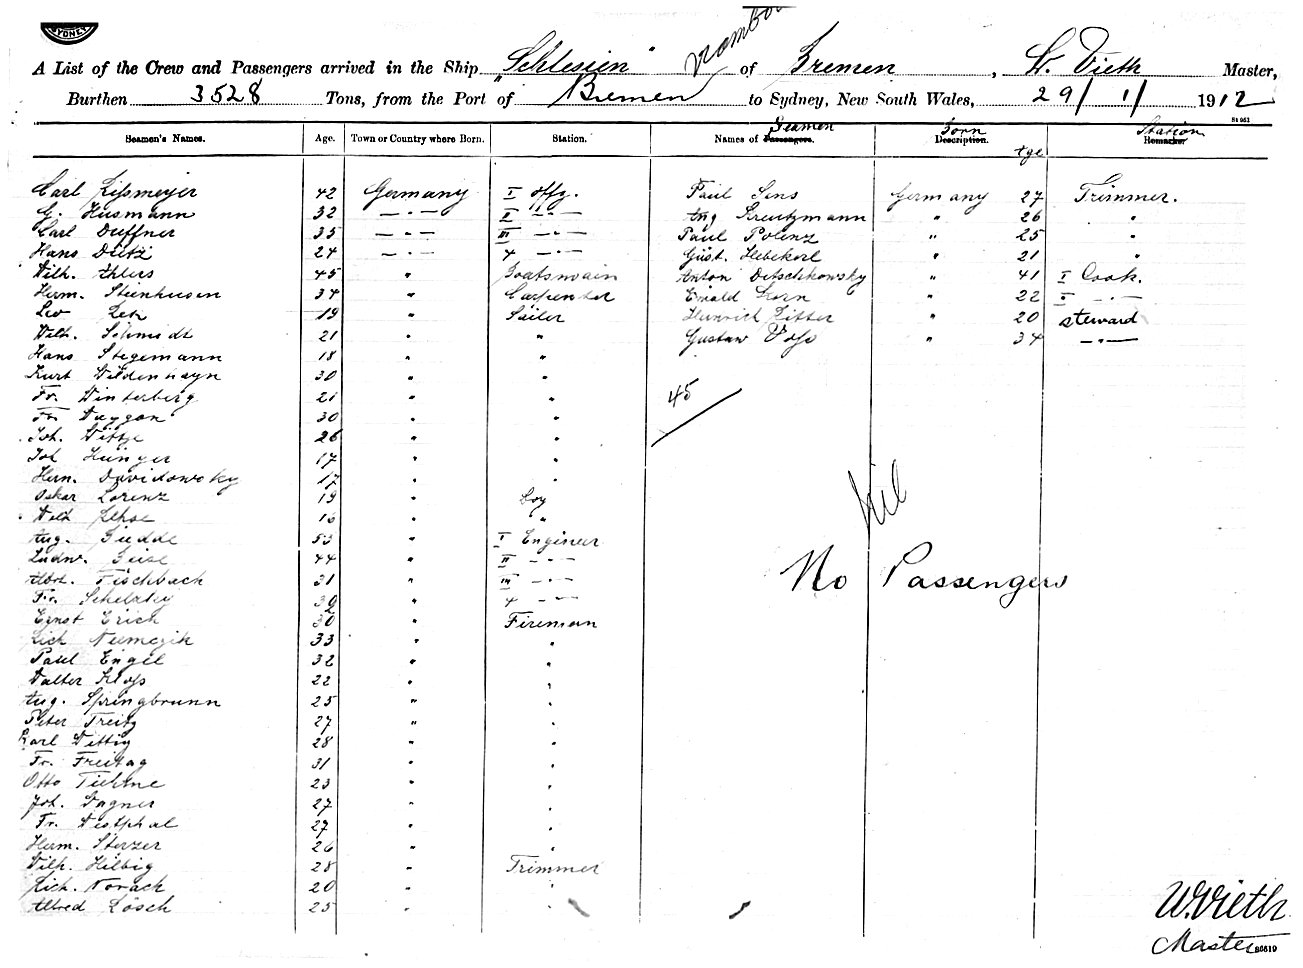 SYDNEY
A List of the Crew and Passengers arrived in the Ship "Schlesien" of Bremen, W. Vieth Master,
Burthen 3528 Tons, from the Port of Bremen to Sydney, New South Wales, 29/1/1912
Seamen's Names. Age. Town or Country where Born. Station. Names of Passengers. Seamen Description. Born Age Remarks. Station
Carl 42 Germany I offz. Paul Sens Germany 27 Trimmer.
G. Husmann 32 —·— II —·— Aug Kreutzmann " 26 "
Carl Duffner 35 —·— III —·— Paul Polenz " 25 "
Hans Dietz 24 —·— 4 —·— Gust. " 21 "
Wilh. Ahlers 45 " Boatswain Anton Detschkowsky " 41 I Cook.
Herm. Steenhusen 34 " Carpenter Ewald Korn " 22 II —·—
Leo 19 " Sailer Heinrich Ritter " 20 steward
Wilh. Schmidt 21 " " Gustav Voss " 34 —·—
Hans Stegemann 18 " "
Kurt Wildenhayn 30 " "
Fr. Winterberg 21 " "
45
Fr. 30 " "
Joh. 26 " "
Joh Hünger 17 " "
Herm. Davidowsky 17 " "
Oskar Lorenz 19 " Boy
Wilh 16 " "
Nil
Aug. 53 " I Engineer
Ludw. 44 " II —·—
No Passengers
Fischbach 31 " III —·—
Fr. 32 " 4 —·—
Ernst Erich 30 " Fireman
Rich Niemczik 33 " "
Paul Engel 32 " "
Walter Kloss 22 " "
Aug. Springbrunn 25 " "
Peter Freitz 27 " "
Karl Wittig 28 " "
Fr. Freitag 31 " "
Otto Tiehme 23 " "
Joh. Wagner 27 " "
Fr. Westphal 27 " "
Herm. Sterzer 26 " "
Wilh. Hilbig 28 " Trimmer
Rich. Norack 20 " "
Alfred Lösch 25 " "
W. Vieth
Master